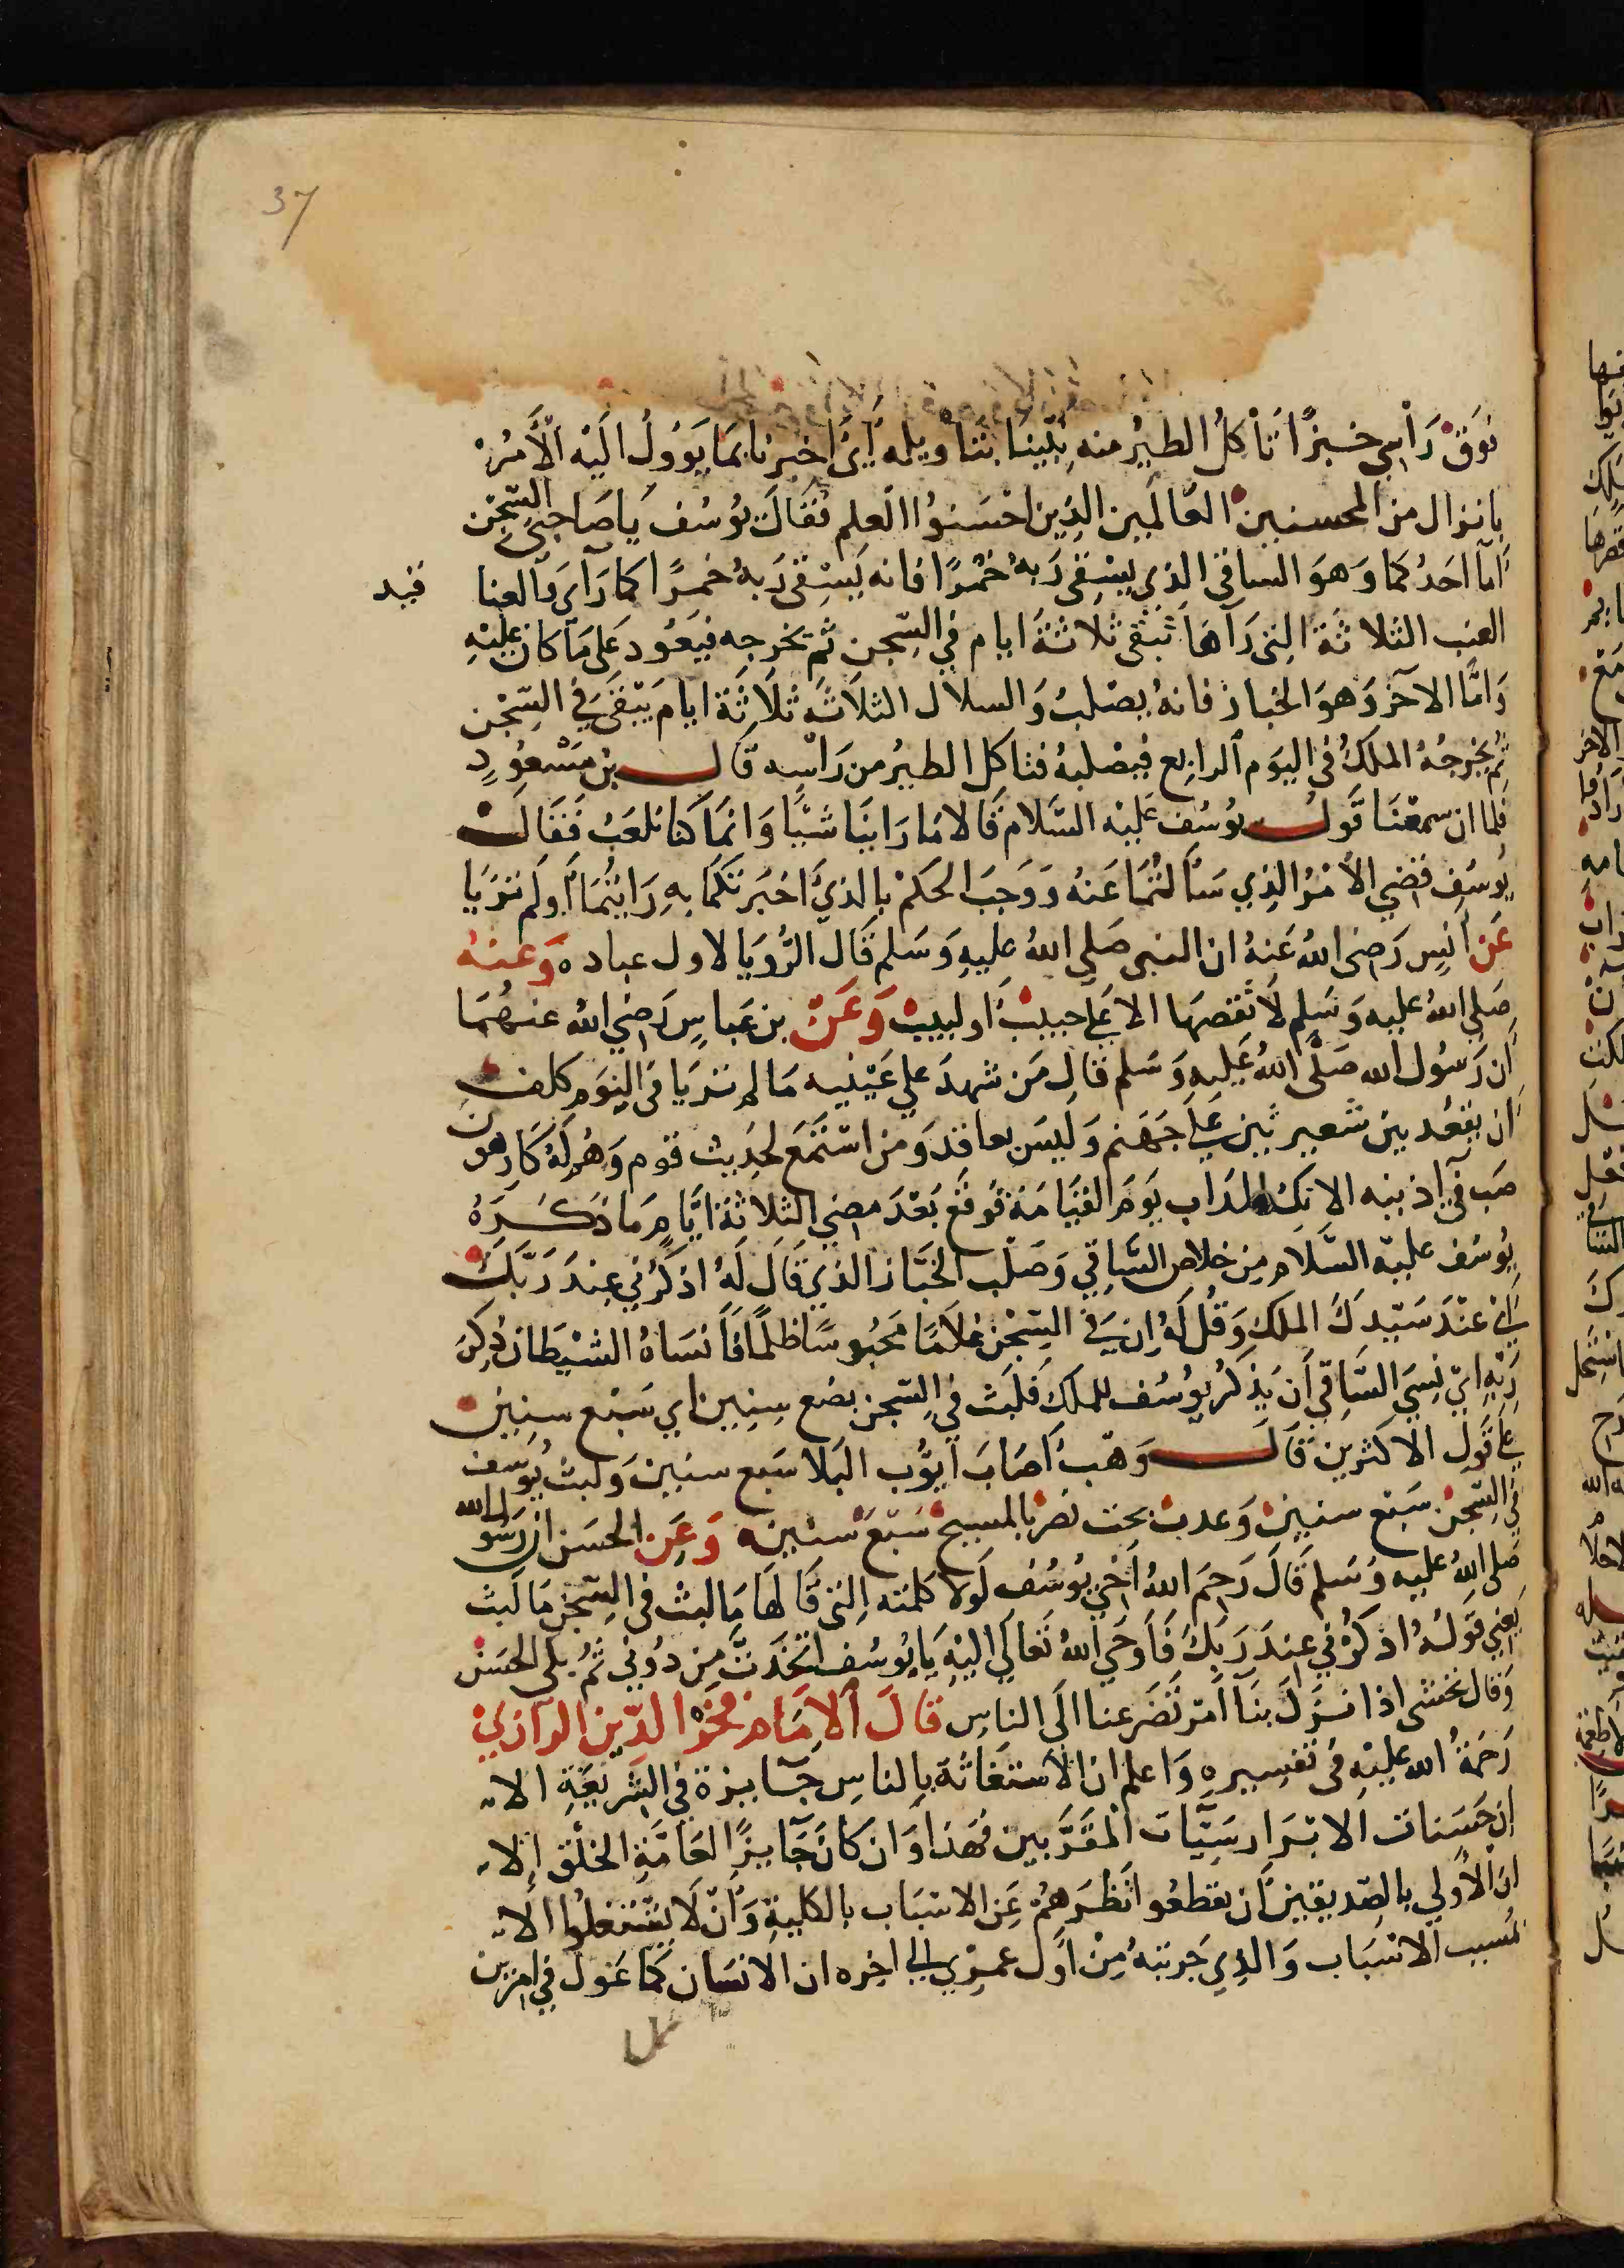 37
فَوْقَ رَأْسِي خبزًا تَأكلُ الطيرُ منه نبِّينَا بتَأويله أيْ اخبرنا بمَا يَؤولُ اليْه الأمْرُ
بانوال من المحسنين العَالمين الذِين احْسَنوُا العلم فَقَالَ يوُسُف يَا صَاحِبي السّجْن
امّا احَدُكمَا وَهوَ الساقى الذي يسْقى رَبهُ خمْرًا فانه يَسْقى رَبهُ خمرًا كما رَآى وَالعنا قيد
العنب الثلاثة التى رَآهَا تبْقى ثلاثة ايام في السّجن ثم يخرجه فيَعُود عَلى مَا كان عليْهِ
وَامَّا الآخر وَهوَ الخباز فانهُ يصْلبُ وَالسلال الثلاثَه ثلَاثَة ايام يَبْقى في السّجْن
ثم يُخْرجُهُ الملكُ في اليوَم الرابع فيصْلبهُ فتاكل الطيرُ من رَاسِه قَال بن مَسْعُودٍ
فلما ان سمعْنَا قَول يوُسُف عَليْه السَّلام قَالا مَا رَاينَا شيْئًا وَانمَا كنا نلعَبُ فَقَالَ
يوُسَف قضي الأمْرُ الذي سَأَلتُمَا عَنهُ وَوجَبَ الحكمْ بالذيْ اخبَرتكمَا بهِ رَايتُمَا أوَلم تَرَيا
عَن انَسٍ رَضى اللهُ عَنهُ ان النبى صَلى اللهُ عليهِ وَسَلم قَال الرُّويَا لاول عباده وَعنهُ
صَلى اللهُ عليه وَسَلم لَا تَقصهَا الا عَلى حبيبْ اَو لبيبْ وَعَنْ بن عَباسٍ رَضي اللهُ عنهُمَا
ان رَسُول الله صَلَّى اللهُ عَليهِ وَسَلم قال مَن شهدَ علي عَيْنيه مَا لم تريَا فى النِوَم كلف
ان يقعُد بين شَعيرتين عَلى جَهَنم وَليسَ بعاقد وَمن اسْتَمَع لحدَيث قوم وَهُم لَهُ كَارهون
صَب في اذنيه الانك المذاب يوَمَ القيَامَة فوقع بَعْدَ مضي الثلاثة ايَّامٍ مَا ذَكَرَهُ
يوُسُف عليه السَّلَام مِن خلاص السَّاقي وَصَلْب الخبَّاز الذي قَال لَهُ اذكُرْني عِندَ رَبِّكَ
اىْ عنْدَ سَيّدكَ الملك وَقُل لَهُ اِن في السّجْن غلَامًا مَحْبُوسًا ظلمًا فَأنسَاهُ الشيْطَان ذِكرَ
رَبّهِ ايْ نسِيَ السَّاقي أن يَذكُر يوُسُف للملك فَلَبث في السّجن بضع سِنِين اي سَبْع سنِين
على قَولِ الاكثرين قَالَ وَهْبُ أصَابَ ايّوُب البَلا سَبع سنين وَلبث يوُسَف
في السّجْن سَبْع سنينَ وَعدب بخت نصّر بالمسيح سَبْعَ سْنين وَعَنِ الحسَن ان رَسُول الله
صَلى اللهُ عليه وَسَلم قَالَ رَحِمَ اللهُ أخي يوُسُف لَولا كلمَته الِتى قَالهَا مَا لبث في السّجن مَا لَبث
يَعنى قَولهُ اذكرْني عِندَ رَبكَ فَأوحَي اللهُ تَعَالي اليْهِ يَا يوُسُف اتخَذتَ مِن دُوني ثم بكى الحسَن
وَقال نخشى اذا نزَلَ بنَا امرٌ تضَرعنا الَى الناسِ قَالَ الاِمَام فخر الدّين الرازيْ
رَحمَةُ الله عليْهِ فى تَفسِيره وَاعلم ان الاستغَاثَة بالناسِ جَايزة في الشريعَةِ الا
ان حَسَنات الابرَار سَيّئات المقرَّبين فهذا وَان كانَ جَآيزًا لعَامَّةِ الخلْق إلا
ان الأولي بالصّديقين ان يقطعُوا نظرَهمُ عَن الاسبَاب بالكلية وَأنْ لَا يشتَغلوُا الا
لمسبب الاسْبَاب وَالذِي جَربتهُ مِنْ اوَّل عمري الي اخِره ان الانسَان كمَا عَول في امرين